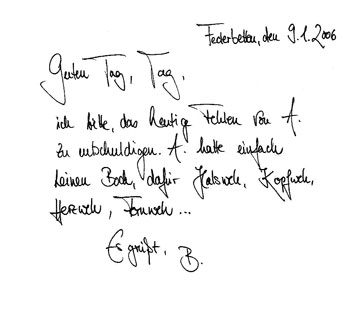 Federbetten, den 9.1.2006
Guten Tag, Tag,
ich bitte, das heutige Fehlen von A.
zu entschuldigen. A. hatte einfach
keinen Bock, dafür Halsweh, Kopfweh,
Herzweh, Fernweh ...
Es grüßt, B.